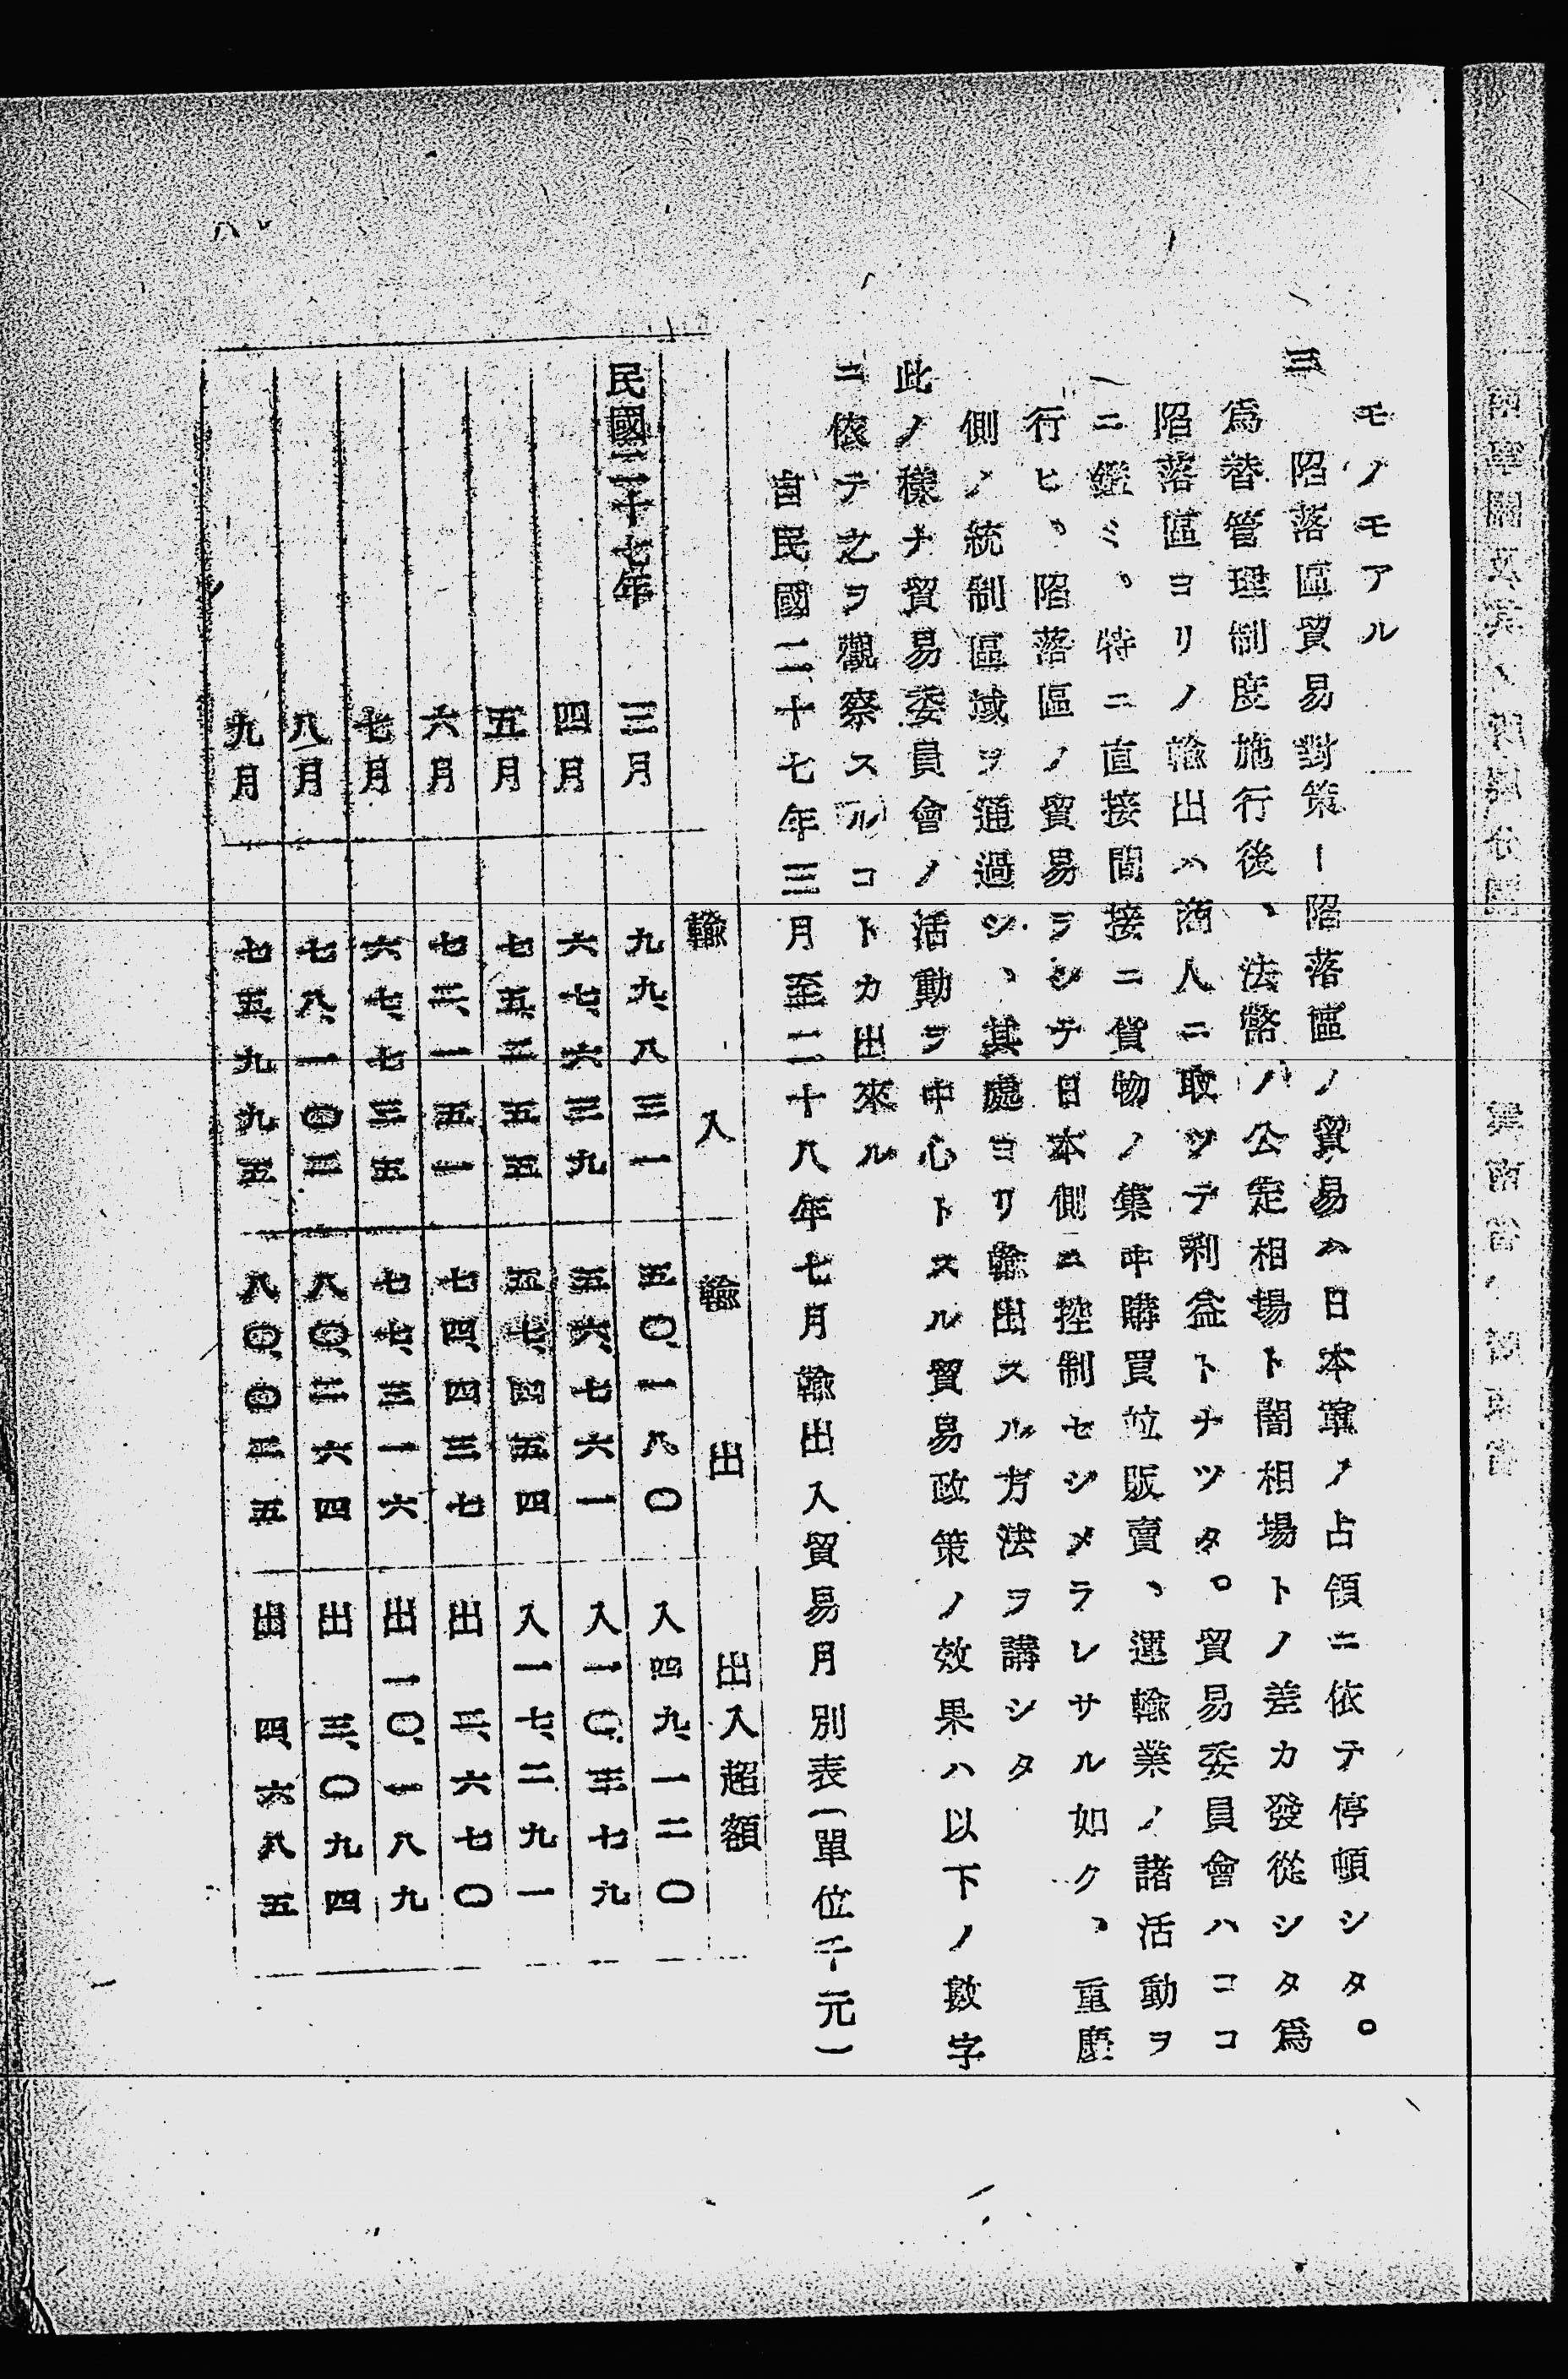 モノモアル
三 陷落區貿易對策ー陷落區ノ貿易ハ日本軍ノ占領ニ依テ停頓シタ。
爲替管理制度施行後、法幣ノ公定相場ト闇相場トノ差カ發從シタ爲
陷落區ヨリノ輸出ハ商人ニ取ツテ利益トナツタ。貿易委員會ハココ
ニ鑑ミ、特ニ直接間接ニ貨物ノ集中購買竝販賣、運輸業ノ諸活動ヲ
行ヒ、陷落區ノ貿易ヲシテ日本側ニ控制セシメラレサル如ク、重慶
側ノ統制區域ヲ通過シ、其處ヨリ輸出スル方法ヲ講シタ
此ノ樣ナ貿易委員會ノ活動ヲ中心トスル貿易政策ノ效果ハ以下ノ數字
ニ依テ之ヲ觀察スルコトカ出來ル
自民國二十七年三月至二十八年七月輸出入貿易月別表(單位千元)
輸入 輸出 出入超額
民國二十七年 三月 九九、八三一 五〇、一八〇 入四九、一二〇
四月 六七、六三九 五六、七六一 入一〇、三七九
五月 七五、三五五 五七、四五四 入一七、二九一
六月 七三、一五一 七四、四三七 出 三、六七〇
七月 六七、七三五 七七、三一六 出一〇、一八九
八月 七八、一〇三 八〇、二六四 出 三、〇九四
九月 七五、九九五 八〇、〇三五 出 四、六八五